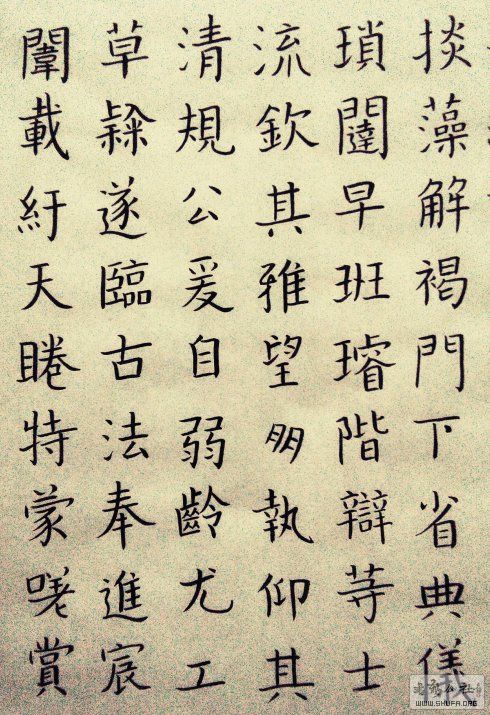 掞藻解褐門下省典儀
瑣闥早班璿階辯等士
流欽其雅望朋執仰其
清規公爰自弱齡尤工
草隸遂臨古法奉進宸
闈載紆天睠特蒙嗟賞
WWW.SHUFA.ORG